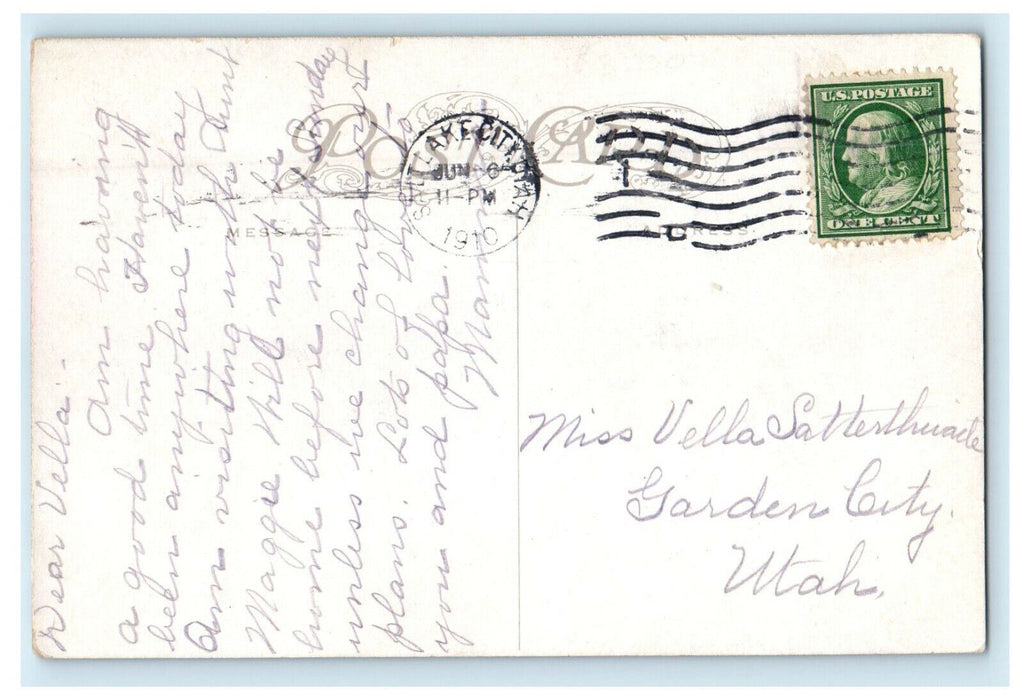 POST CARD
SALT LAKE CITY, UTAH
JUN 6
11-PM
1910
U.S. POSTAGE
ONE CENT
MESSAGE
ADDRESS.
Dear Vella.
Am having
a good time Haven't
been anywhere today
Am visiting with Aunt
Maggie. Will not be
home before next Sunday
unless we change our
plans. Lots of love to
you and papa.
Mama
Miss Vella Satterthwaite
Garden City.
Utah.